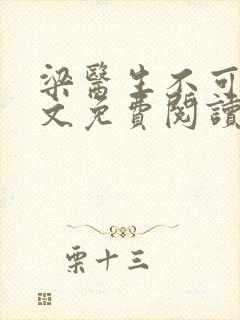 梁醫生不可
文免費閱讀
栗十三